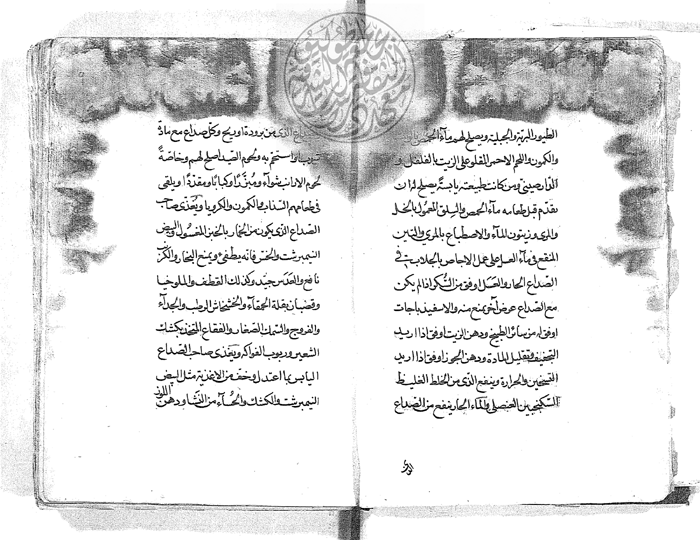 الطيور البريّة والجبلية ويصلح لهم مآء الحمص
والكمون واللحم الاحمر المقلو على الزيت والفلفل و
الدارصيني ومن كانت طبيعته يابسة يصلح له ان
يقدم قبل طعامه مآء الحمص والسلق المعمول بالخل
والمرى وزيتون المآء والاصطباغ بالمرى والتين
المنقع في مآء العسل على عمل الاجاص بالجلاب في
الصداع الحار والعسل اوفق من السكر اذا لم يكن
مع الصداع عرض آخر يمنع منه والاسفيذباجات
اوفق له من سائر الطبيخ ودهن الزيت اوفق اذا اريد
التجفيف وتقليل المادة ودهن الجوز اوفق اذا اريد
التسخين والحرارة وينفع الذى من الخلط الغليظ
السكنجبين العنصلى والمآء الحار ينفع من الصداع
الذى
الصداع الذى من برودة او ريح وكلّ صداع مع مادّة
شربا واستحم به ولحوم الصيد اصلح لهم وخاصّة
لحوم الارانب شوآء ومبزرًا وكبابًا ومقددًا ويلقى
في طعامهم السذاب والكمون والكرويا ويغذى صاحب
الصداع الذى يكون من الخمار الخبز المغسول والبيض
النيمبرشت والخس فانّه يطفئ ويمنع البخار والكرنب
نافع والعدس جيد وكذلك القطف والملوخيا
وقضبان بقلة الحمقآء والخشخاش الرطب والجدآء
والفروج والسمك الصغار والفقاع المتخذ بكشك
الشعير وربوب الفواكه ويغذى صاحب الصداع
اليابس بما اعتدل وخف من الاغذية مثل البيض
النيمبرشت والكشك والحسآء من النشا ودهن اللوز